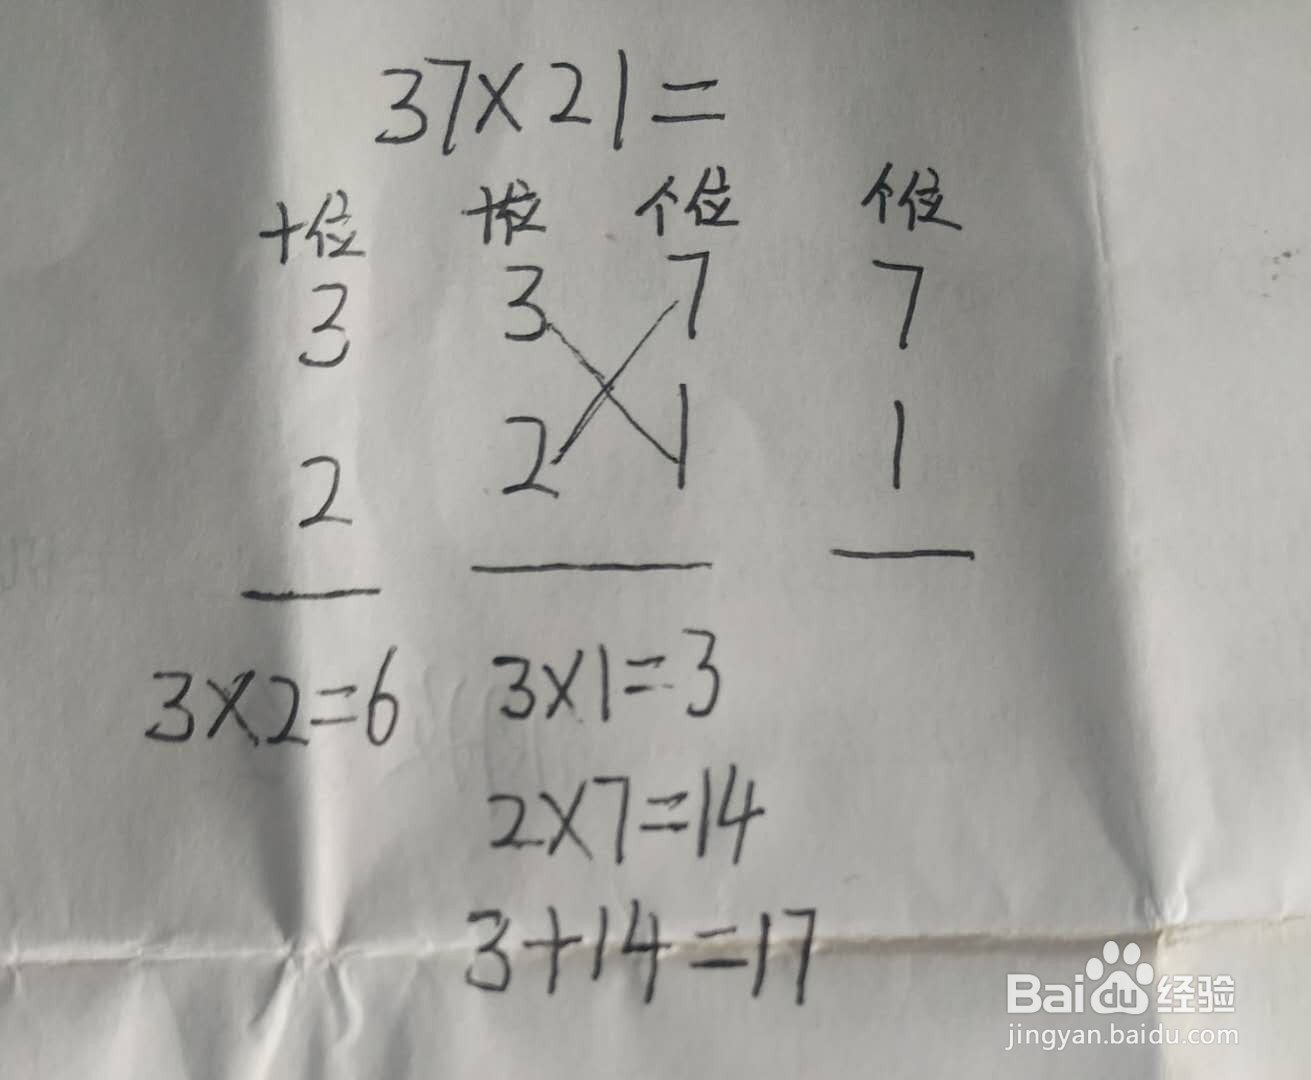 37×21=
十位 十位 个位 个位
3 3 7 7
2 2 1 1
3×2=6 3×1=3
2×7=14
3+14=17
Baidu经验
jingyan.baidu.com